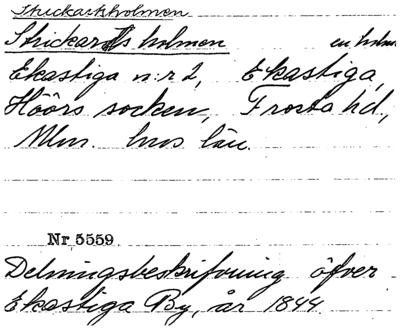 Strickarhholmen
Strickarls holmen en holme
Ekastiga n:r 2, Ekastiga,
Höörs socken, Frosta hd,
Mlm. hus län.
Nr 5559
Delningsbeskrifvning öfver
Ekastiga By, år 1844